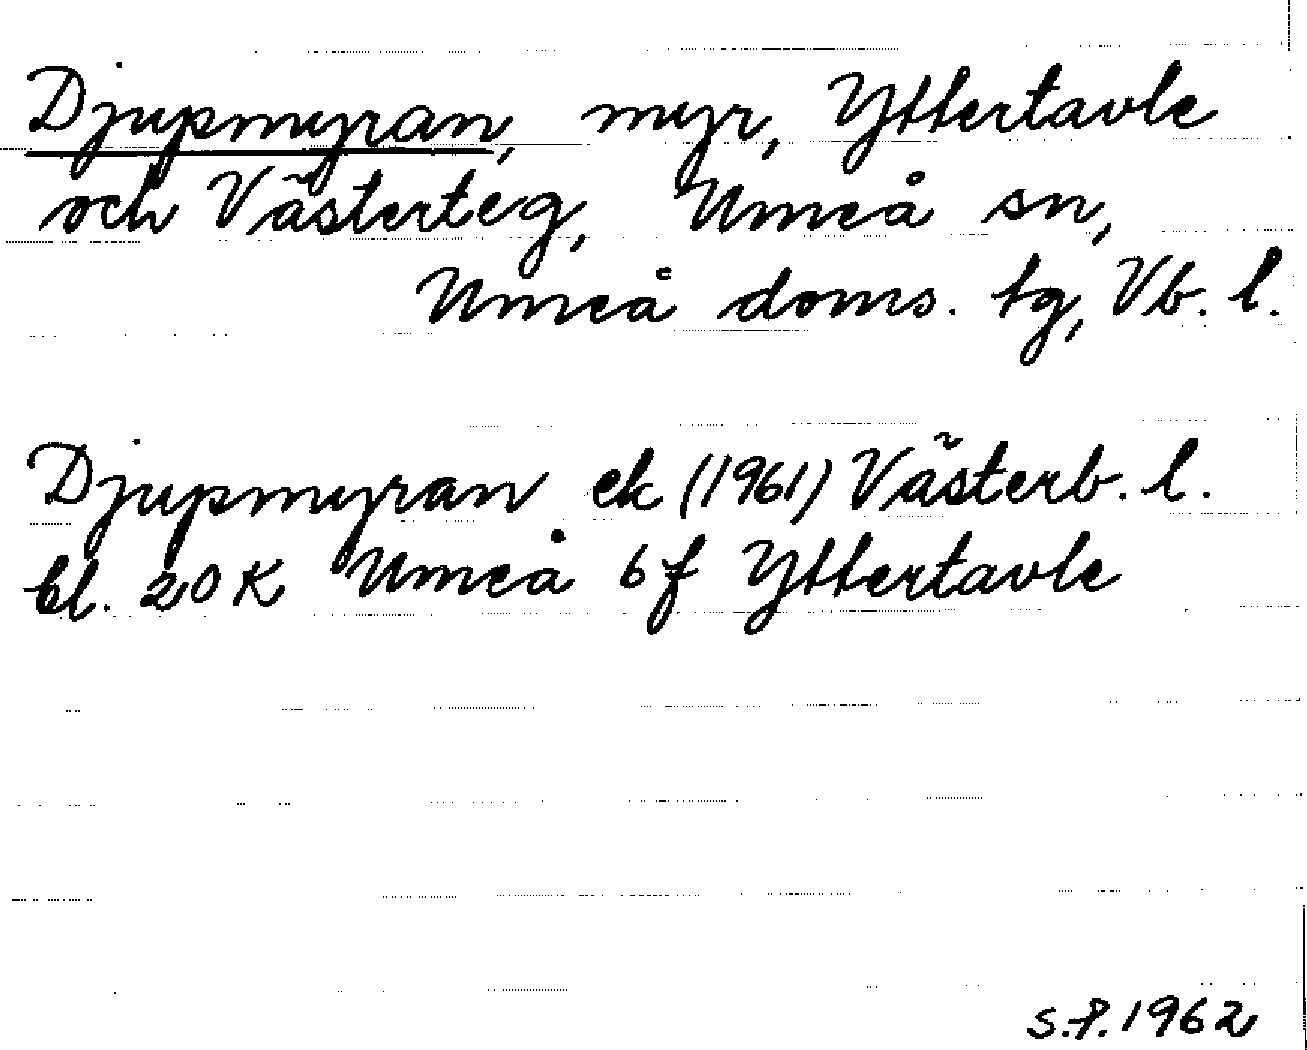 Djupmyran, myr, Yttertavle
och Västerteg, Umeå sn,
Umeå doms. tg, Vb. l.
Djupmyran ek (1961) Västerb. l.
bl. 20 K Umeå 6f Yttertavle
S.P. 1962